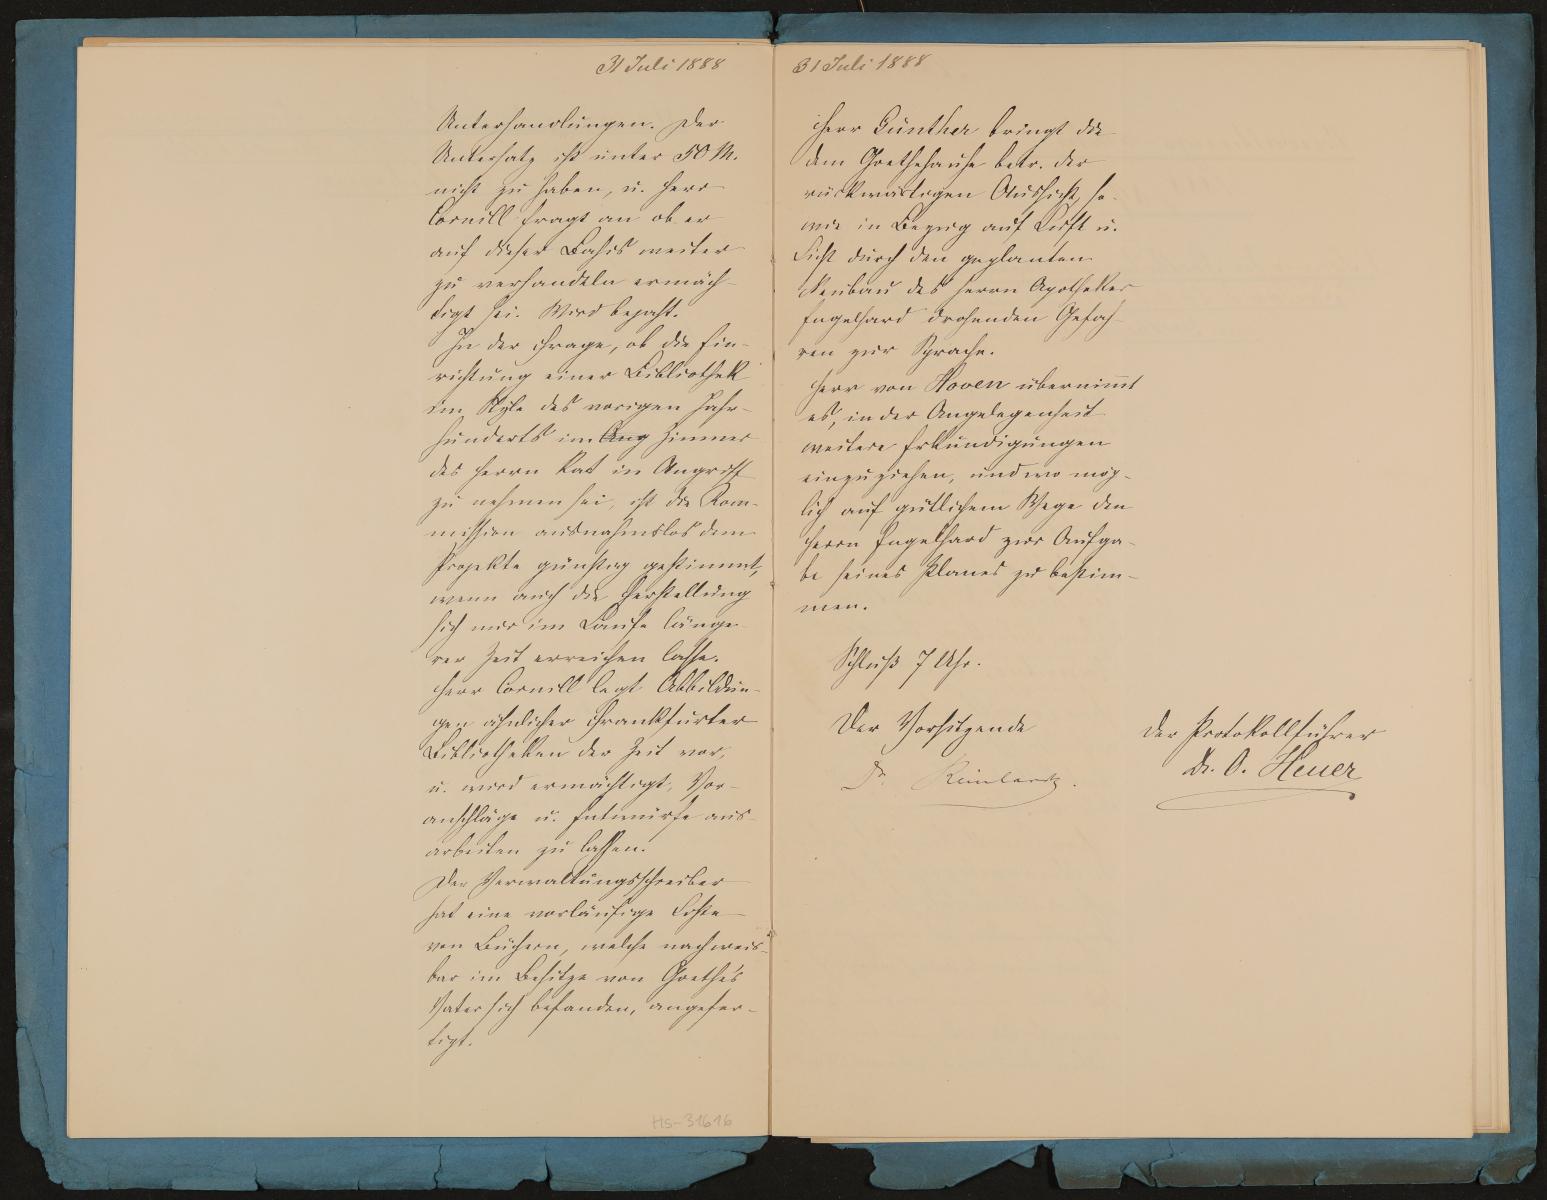 31 Juli 1888
Unterhandlungen. Der
Untersatz ist unter 50 M.
nicht zu haben, u. Herr
Cornill fragt an ob er
auf dieser Basis weiter
zu verhandeln ermäch-
tigt sei. Wird bejaht.
In der Frage, ob die Ein-
richtung einer Bibliothek
im Style des vorigen Jahr-
hunderts im Ang Zimmer
des Herrn Rat in Angriff
zu nehmen sei, ist die Kom-
mission ausnahmslos dem
Projekte günstig gestimmt,
wenn auch die Herstellung
sich nur im Laufe länge-
rer Zeit erreichen lasse.
Herr Cornill legt Abbildun-
gen ähnlicher Frankfurter
Bibliotheken der Zeit vor,
u. wird ermächtigt, Vor-
anschläge u. Entwürfe aus-
arbeiten zu lassen.
Der Verwaltungsschreiber
hat eine vorläufige Liste
von Büchern, welche nachweis-
bar im Besitze von Goethe's
Vater sich befanden, angefer-
tigt.
Hs-31616
31 Juli 1888
Herr Günther bringt die
dem Goethehause betr. der
rückwärtigen Aussicht, so-
wie in Bezug auf Luft u.
Licht durch den geplanten
Neubau des Herrn Apotheker
Engelhard drohenden Gefah-
ren zur Sprache.
Herr von Hoven übernimmt
es, in der Angelegenheit
weitere Erkundigungen
einzuziehen, und wo mög-
lich auf gütlichem Wege den
Herrn Engelhard zur Aufga-
be seines Planes zu bestim-
men.
Schluß 7 Uhr.
Der Vorsitzende
Dr.
Der Protokollführer
Dr. O. Heuer